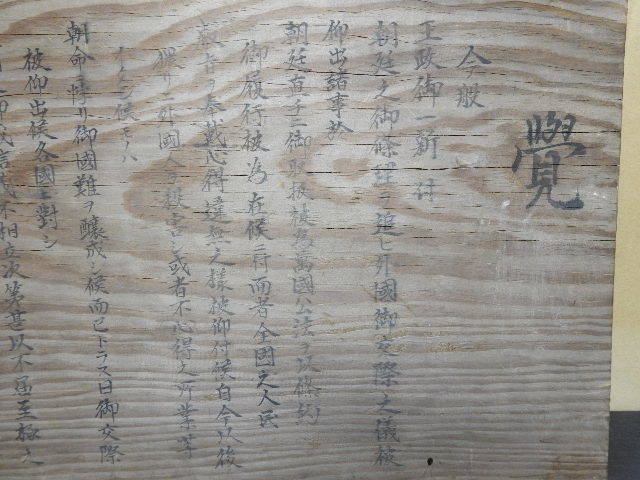 覺
今般
王政御一新ニ付
朝廷之御條理ヲ追ヒ外國御交際之儀被
仰出諸事於
朝廷直ニ御取扱被為萬國公法ヲ以條約
御履行被為在候ニ付而者全國之人民
叡旨ヲ奉戴心得違無之様被仰付候自今以後
猥リニ外國人ヲ殺害シ或者不心得之所業等
イタシ候モノハ
朝命ニ悖リ御國難ヲ醸成シ候而已ナラス一旦御交際
被仰出候各國ニ對シ
御威信茂不相立次第甚以不屆至極之